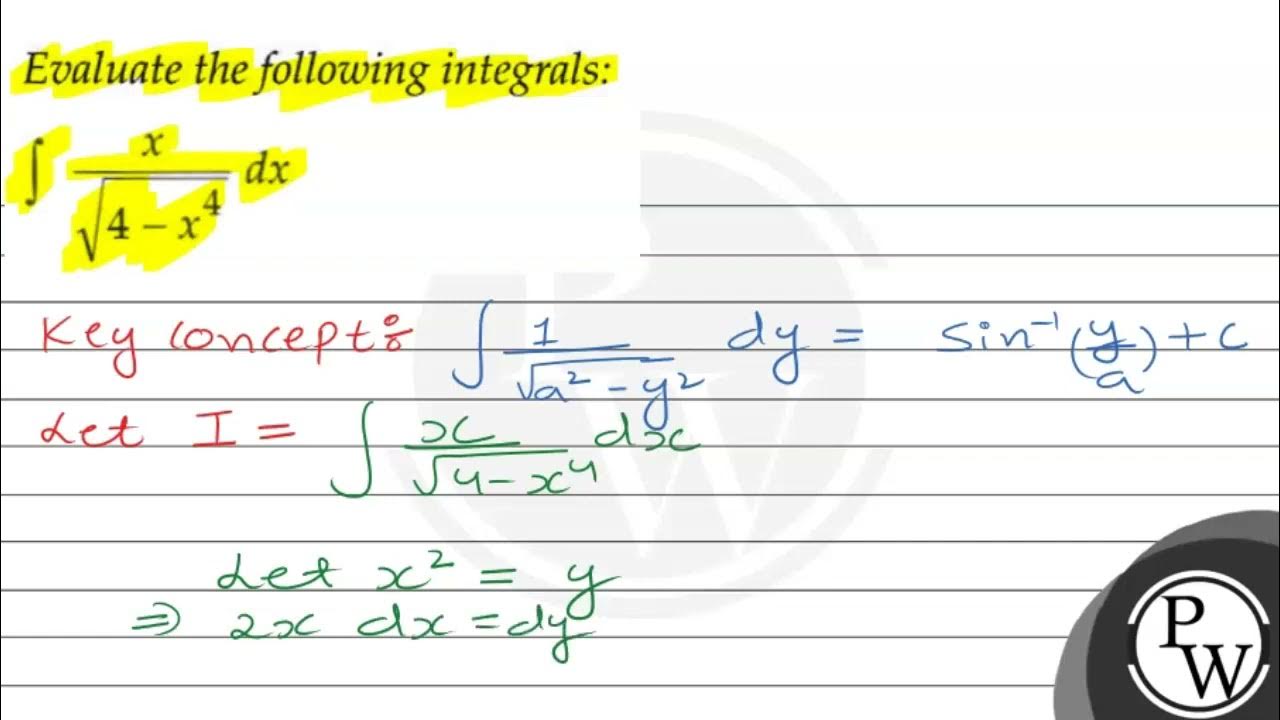 Evaluate the following integrals:
∫ x/√(4 − x⁴) dx
Key concept: ∫ 1/√(a² − y²) dy = sin⁻¹(y/a) + c
Let I = ∫ x/√(4 − x⁴) dx
Let x² = y
⇒ 2x dx = dy
P
W